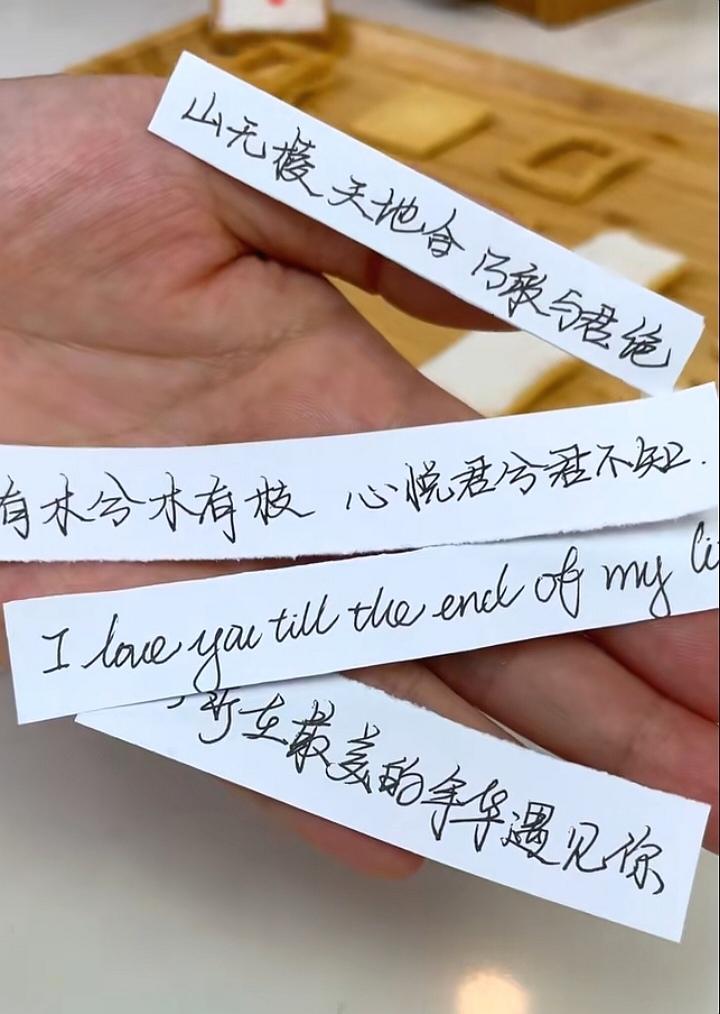 山无棱 天地合 乃敢与君绝
有木兮木有枝 心悦君兮君不知.
I love you till the end of my li
于在最美的年华遇见你